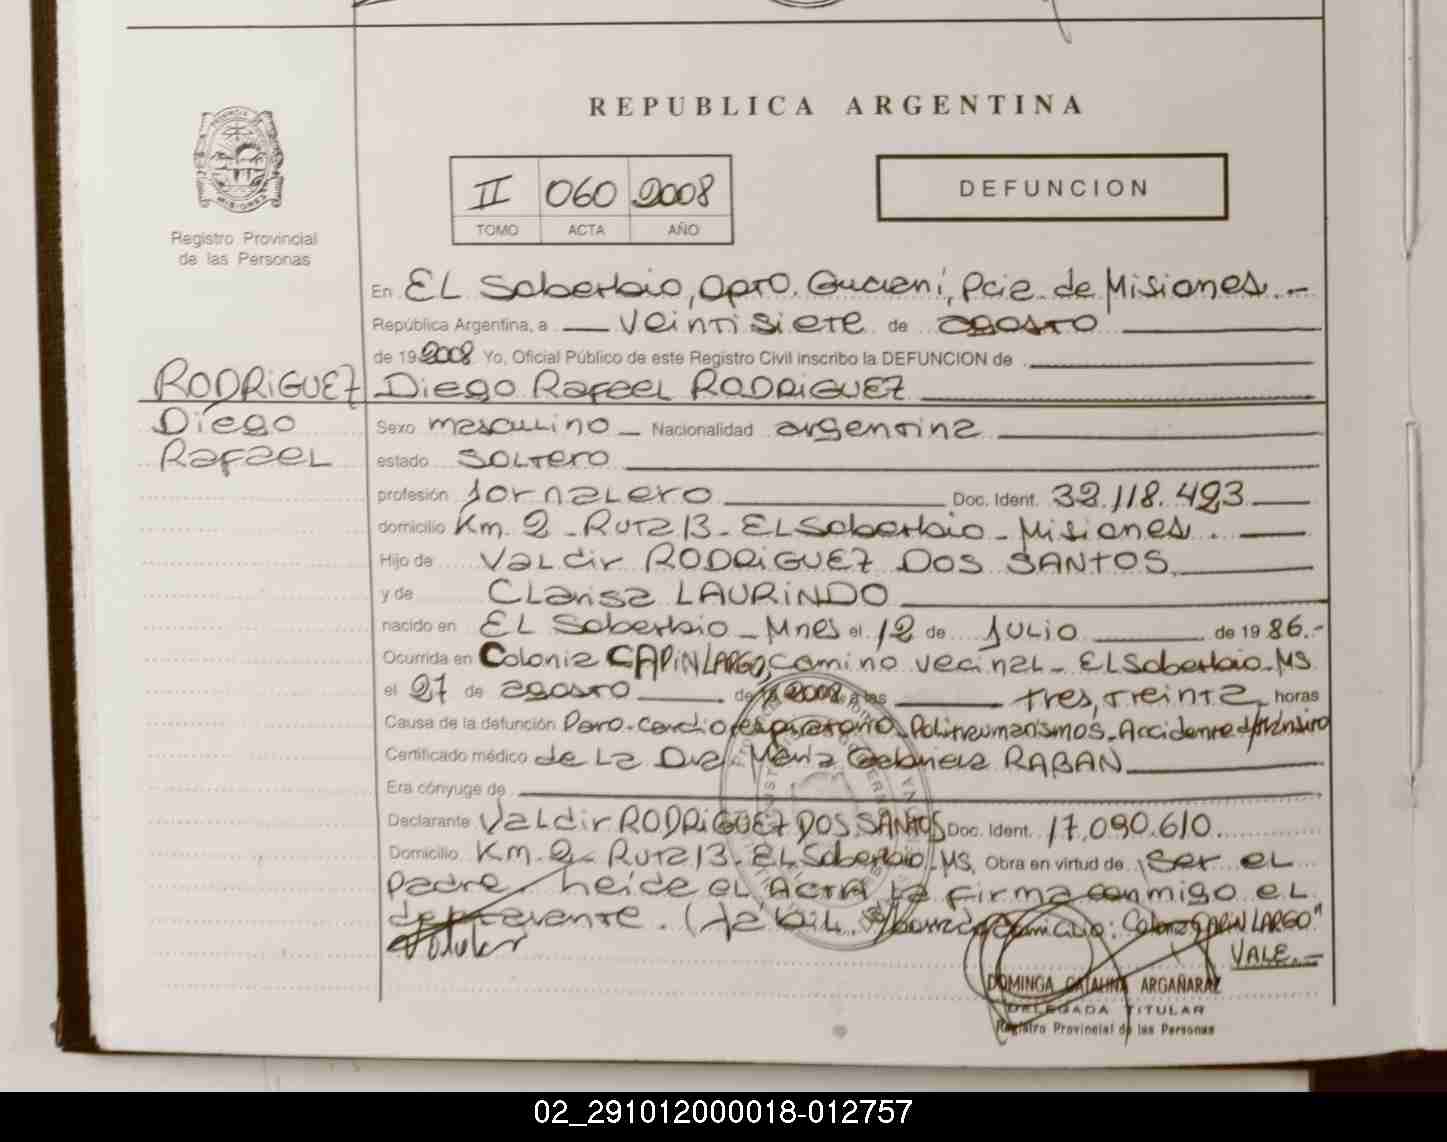 REPUBLICA ARGENTINA
II 060 2008
TOMO ACTA AÑO
DEFUNCION
PROVINCIA DE
MISIONES
Registro Provincial
de las Personas
RODRIGUEZ
Diego
Rafael
En EL Soberbio, Dpto. Guarani, Pcia. de Misiones.-
República Argentina, a veintisiete de agosto
de 19 2008 Yo, Oficial Público de este Registro Civil inscribo la DEFUNCION de
Diego Rafael RODRIGUEZ
Sexo masculino Nacionalidad argentina
estado soltero
profesión Jornalero Doc. Ident. 32.118.423
domicilio Km. 2 - Ruta 13 - EL Soberbio - Misiones.
Hijo de Valdir RODRIGUEZ DOS SANTOS
y de Clarisa LAURINDO
nacido en EL Soberbio - Mnes el 12 de JULIO de 19 86.-
Ocurrida en Colonia CAPIN LARGO, camino vecinal - EL Soberbio - MS
el 27 de agosto de 19 2008 a las tres, treinta horas
Causa de la defunción Paro-cardio respiratorio - Politraumatismos - Accidente
Certificado médico de la Dra. María Gabriela RABAN
Era cónyuge de
Declarante Valdir RODRIGUEZ DOS SANTOS Doc. Ident. 17.090.610
Domicilio Km. 2 - Ruta 13 - EL Soberbio, MS, Obra en virtud de ser el
padre, leída el Acta la firma conmigo el
declarante. Colonia CAPIN LARGO"
VALE.-
DOMINGA CATALINA ARGAÑARAZ
DELEGADA TITULAR
Registro Provincial de las Personas
02_291012000018-012757